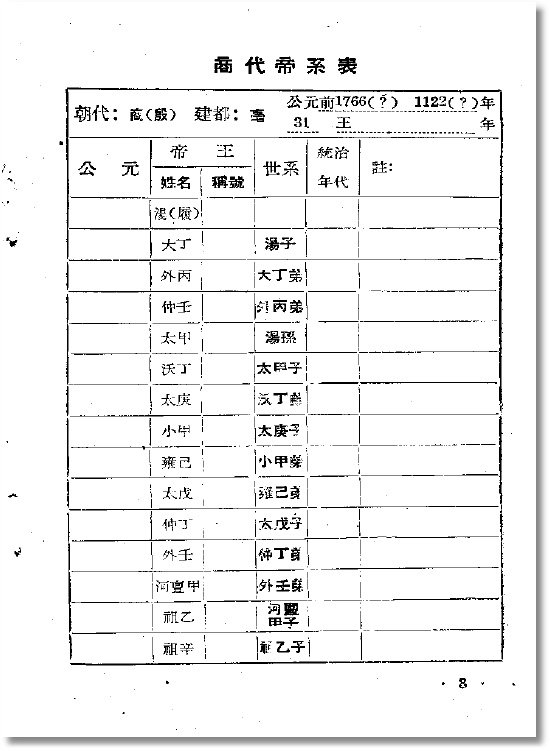 商代帝系表
朝代：商（殷） 建都：亳 公元前1766(？) 1122(？)年
31 王 年
公 元 帝 王 世系 統治年代 註：
姓名 稱號
湯（履）
大丁 湯子
外丙 大丁弟
仲壬 外丙弟
太甲 湯孫
沃丁 太甲子
太庚 沃丁弟
小甲 太庚子
雍己 小甲弟
太戊 雍己弟
仲丁 太戊子
外壬 仲丁弟
河亶甲 外壬弟
祖乙 河亶甲子
祖辛 祖乙子
· 8 ·